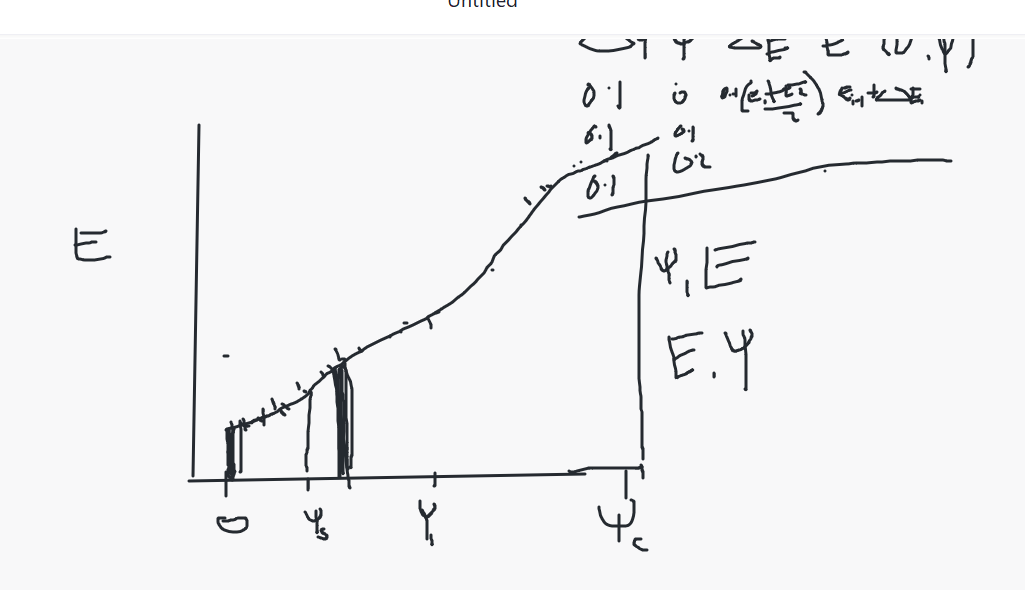 Untitled
Ψ ΔE E (D, Ψ)
0.1 0 0.1(E₁+E₂/2) Eᵢ₋₁+ΔE
0.1 0.1
0.2
0.1
E
Ψ, E
E, Ψ
0 Ψs Ψ₁ Ψc